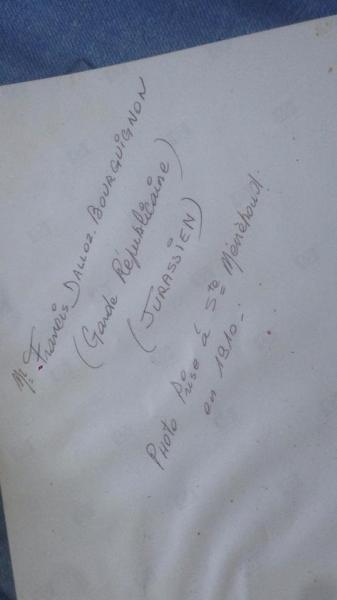 Mr. Francis DALLOZ. BOURGUIGNON
(Garde Républicaine)
(JURASSIEN)
PHOTO Prise à Ste Ménéhould.
en 1910.